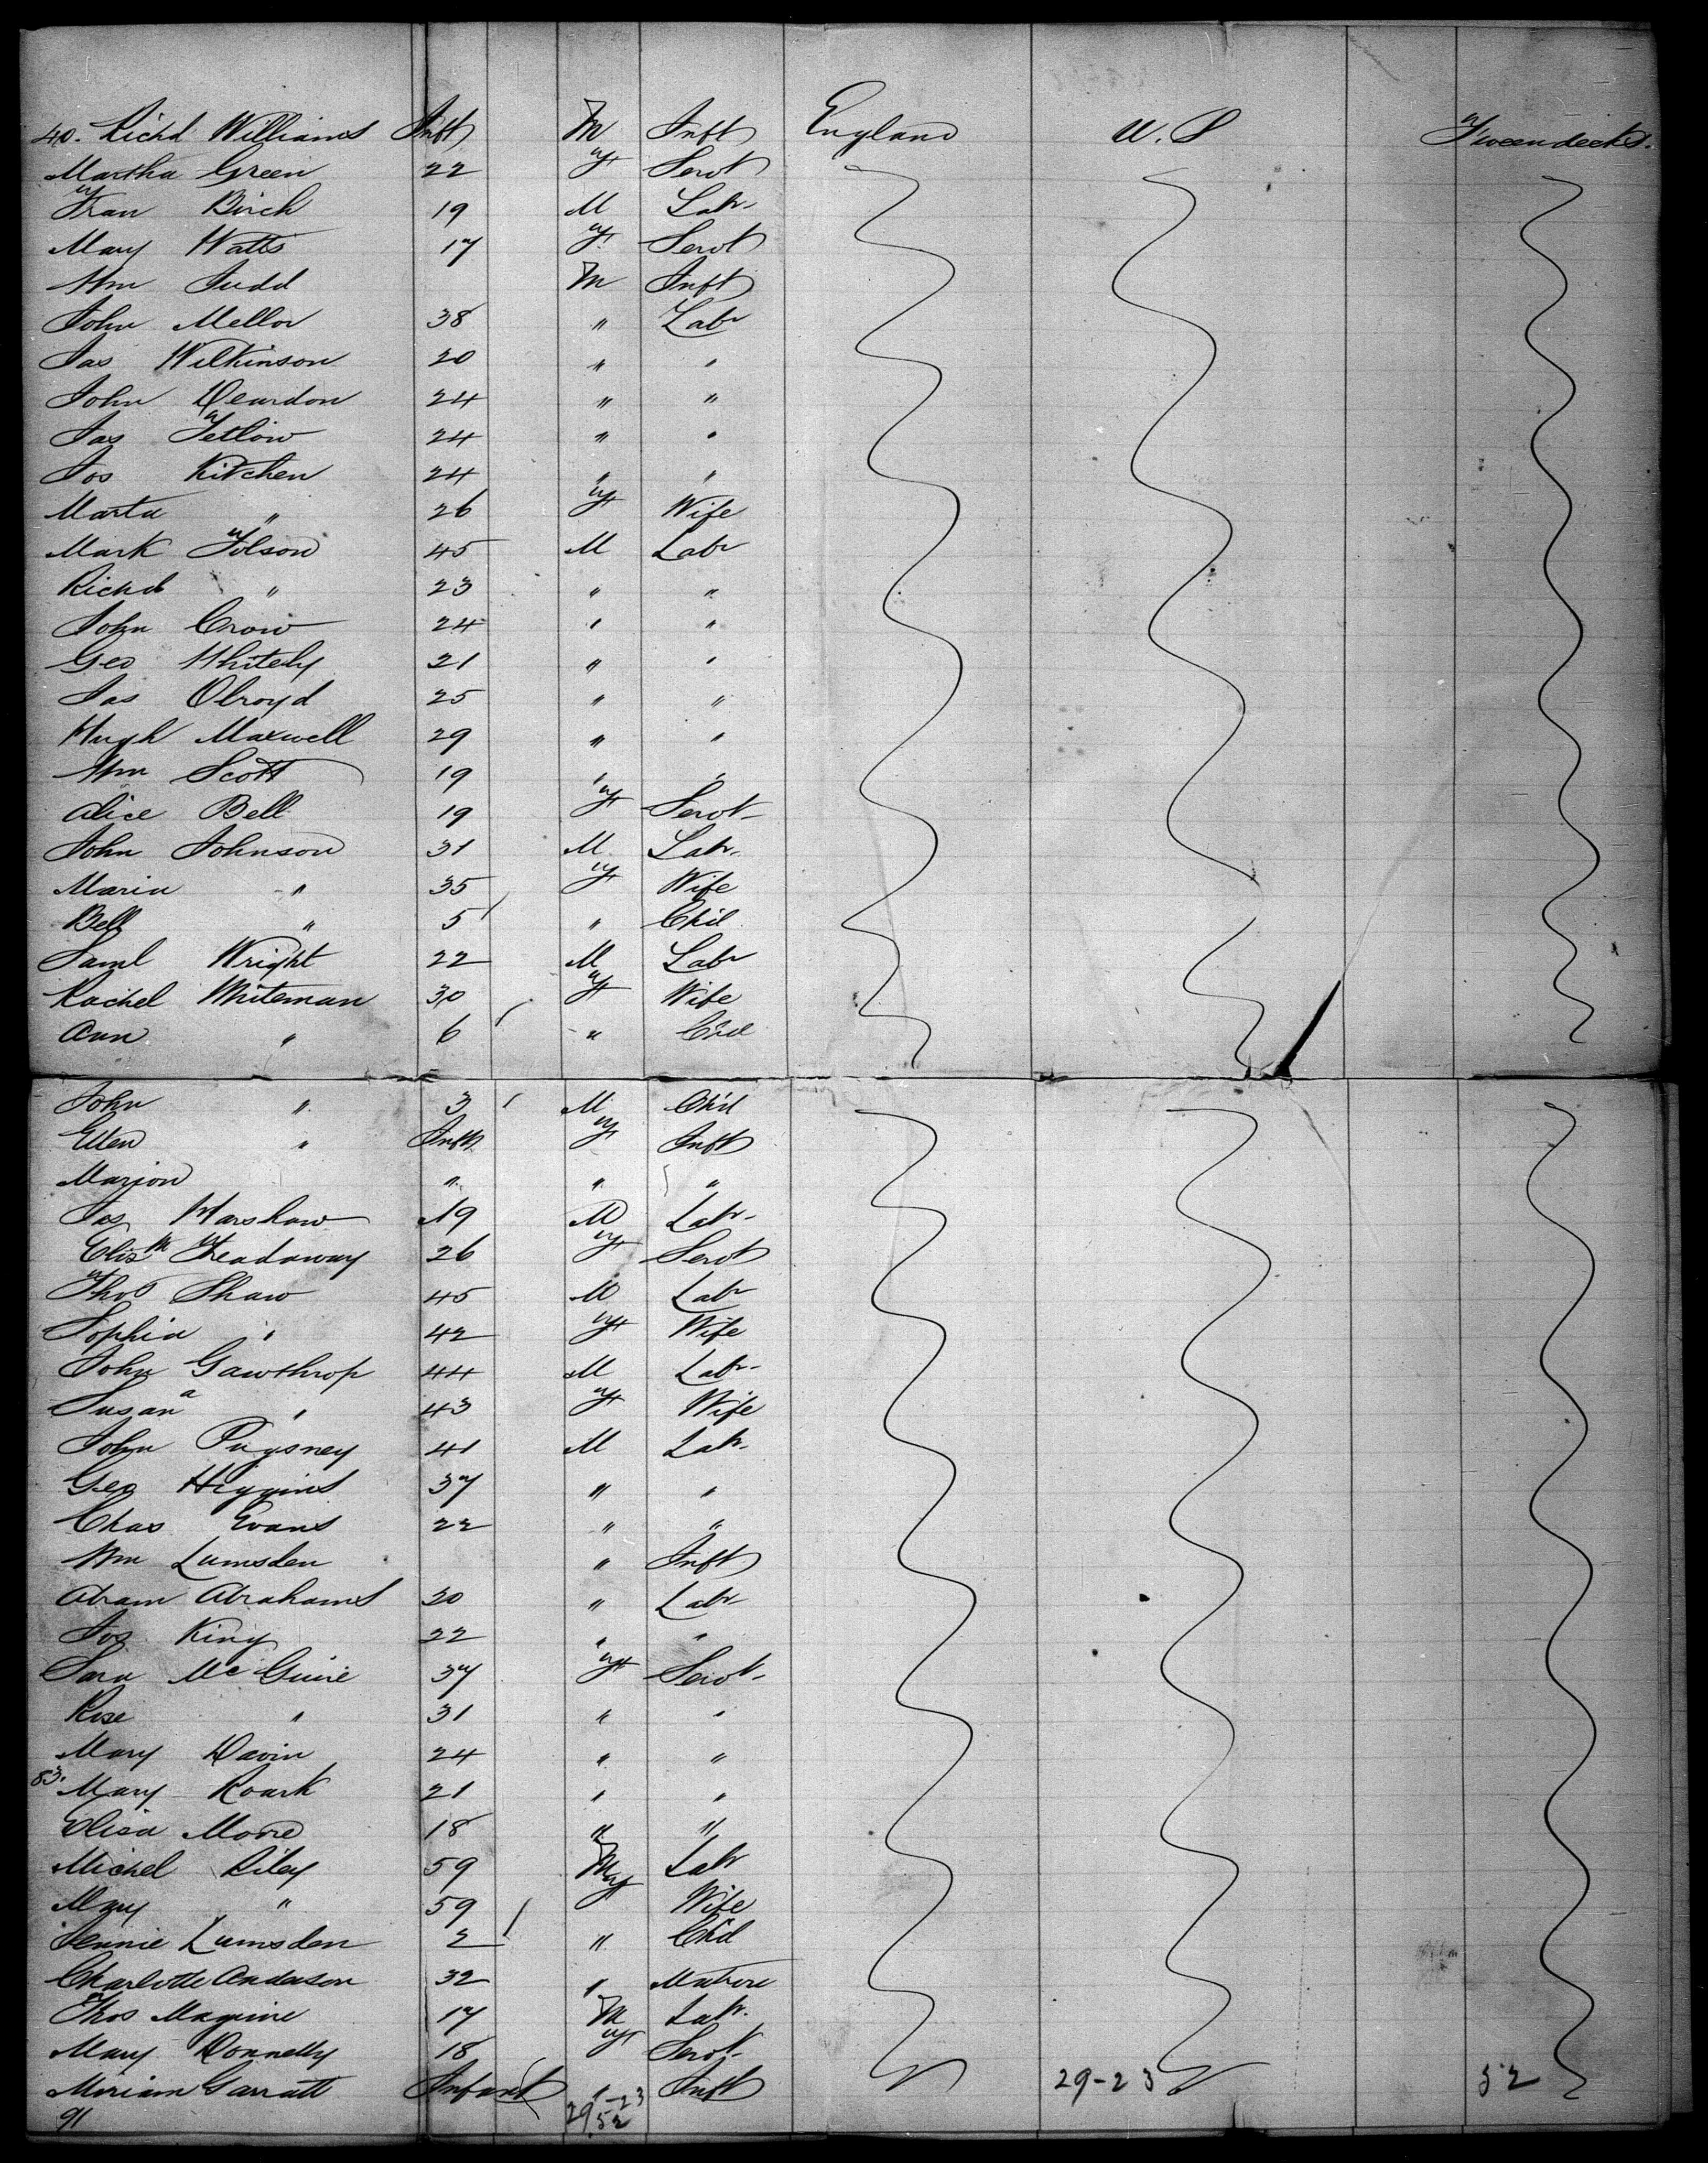 40. Richd Williams Inft M Inft England U.S Tweendecks.
Martha Green 22 F Servt
Fran Birch 19 M Labr
Mary Watts 17 F Servt
Wm Judd M Inft
John Mellor 38 " Labr
Jas Wilkinson 20 " "
John Deardon 24 " "
Jas Tetlow 24 " "
Jos Kitchen 24 " "
Marta " 26 F Wife
Mark Tolson 45 M Labr
Richd " 23 " "
John Crow 24 " "
Geo Whitely 21 " "
Jas Olroyd 25 " "
Hugh Maxwell 29 " "
Wm Scott 19 " "
Alice Bell 19 F Servt
John Johnson 31 M Labr
Maria " 35 F Wife
Bell " 5 " Chil
Saml Wright 22 M Labr
Rachel Whiteman 30 F Wife
Ann " 6 " Chil
John " 3 M Chil
Ellen " Inft F Inft
Marion " " "
Jas Warshaw 19 M Labr
Elisth Treadaway 26 F Servt
Thos Shaw 45 M Labr
Sophia " 42 F Wife
John Gawthrop 44 M Labr
Susana " 43 F Wife
John Pugsney 41 M Labr
Geo Higgins 37 " "
Chas Evans 22 " "
Wm Lumsden " Inft
Abram Abrahams 20 " Labr
Jos King 22 " "
Sara McGuire 37 F Servt
Rose " 31 " "
Mary Davin 24 " "
83. Mary Roark 21 " "
Elisa Moore 18 " "
Michel Riley 59 M Labr
Mary " 59 F Wife
Jennie Lumsden 2 " Chil
Charlotte Anderson 32 " Matron
Thos Maguire 17 M Labr
Mary Donnelly 18 F Servt
Miriam Garratt Infant " Inft 29-23 52
91 29-23
52